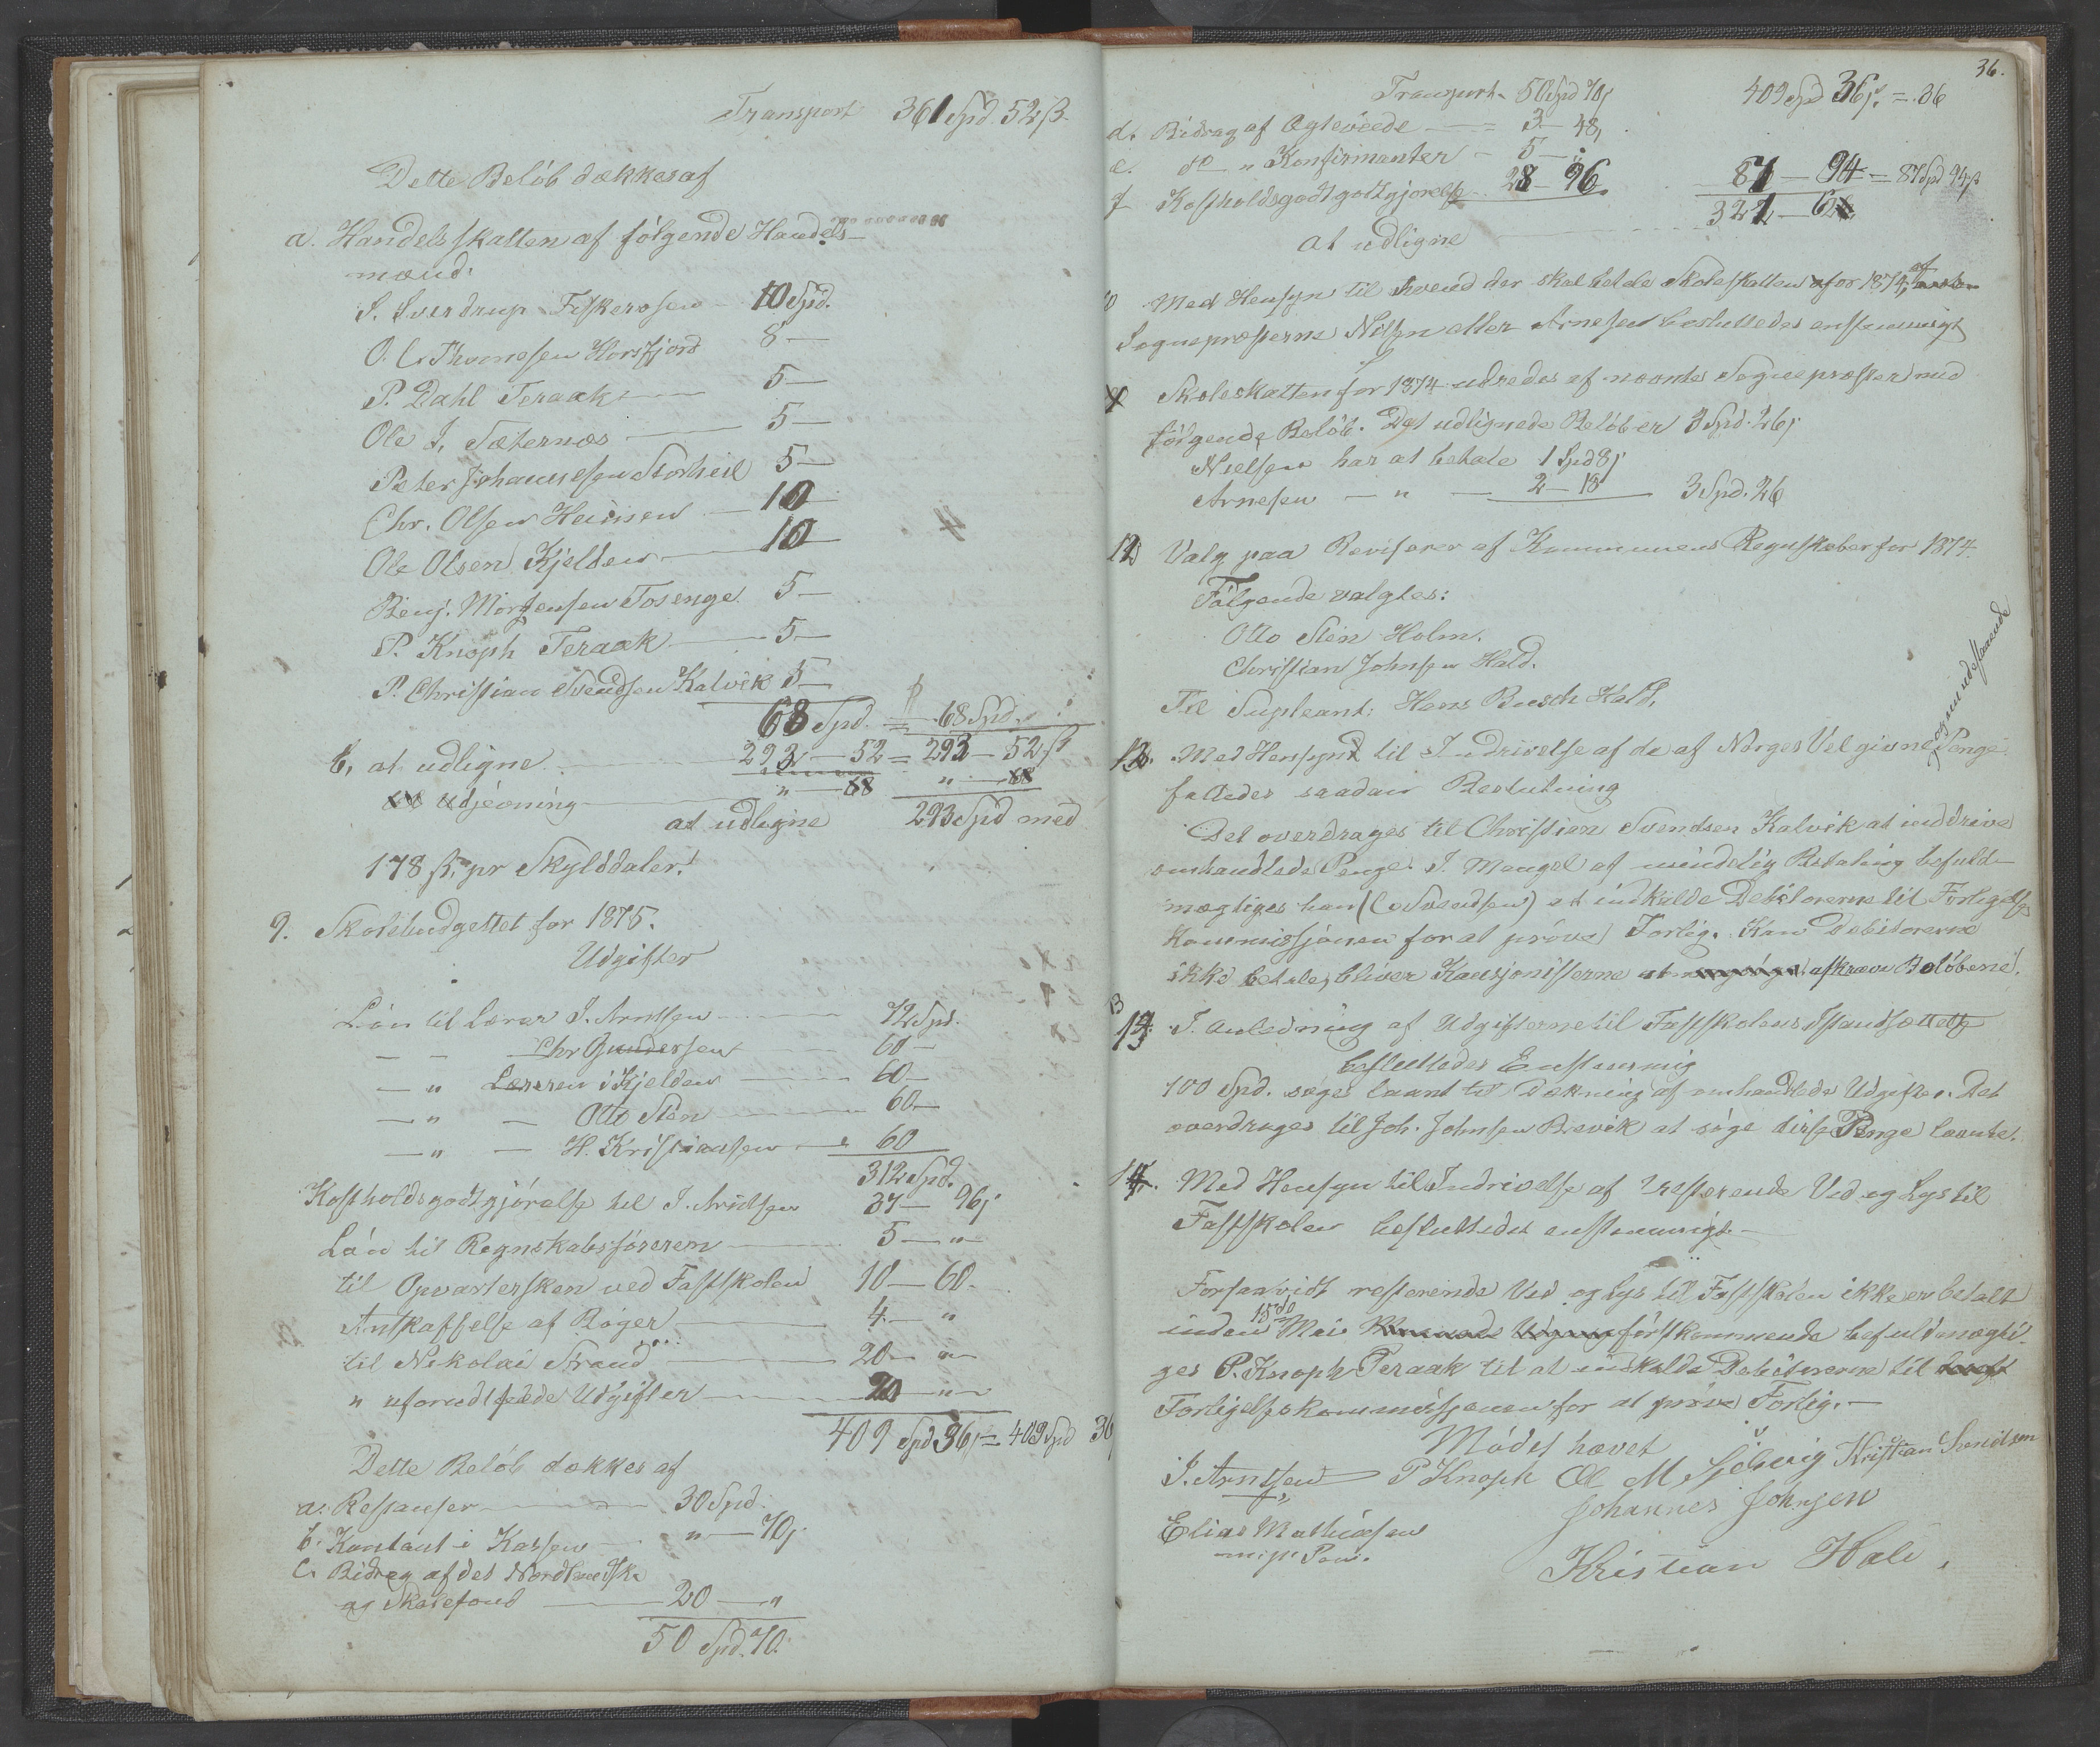 Transport 361 Spd. 52 ß
Dette Beløb dækkes af
a. Handelsskatten af følgende Handels-
mænd:
S. Sverdrup Fiskerosen 10 Spd.
O. C. Thonesen Horsfjord 8 —
P. Dahl Teraak — 5 —
Ole J. Sæternæs — 5 —
Peter Johannesen Storheil 5 —
Chr. Olsen Heinsen — 10
Ole Olsen Kjelden — 10
Benj. Mortensen Tosenge 5 —
P. Knoph Teraak — 5 —
P. Christian Svendsen Kalvik 5 —
68 Spd. = 68 Spd.
b, at udligne — 293 — 52 = 293 — 52 ß
til Udjevning — " — 68 " — 68
at udligne 293 Spd med
178 ß pr Skylddaler!
9. Skolebudgettet for 1875.
Udgifter
Løn til Lærer I. Arntsen — 72 Spd.
— — Chr Gundersen — 60 —
— " Læreren i Kjelden — 60 —
— " — Otto Sten — 60 —
— " — H. Kristiansen — 60
312 Spd.
Kostholdsgodtgjørelse til I. Arntsen 37 — 96
Løn til Regnskabsføreren — 5 — "
til Opvartersken ved Fastskolen 10 — 60
Anskaffelse af Bøger — 4 — "
til Nikolai Strand — 20 — "
" uforudseede Udgifter — 20 — "
409 Spd 36 = 409 Spd 36
Dette Beløb dækkes af
a. Restanser — 30 Spd.
b. Kontant i Kassen — " — 70
c. Bidrag af det Nordlandske
og Skolefond — 20 — "
50 Spd. 70.
36.
Transport 50 Spd 70 409 Spd 36 = 36
d. Bidrag af Ægteviede — 3 — 48,
e. do " Konfirmanter — 5 — "
f Kostholdsgodtgjørelse 28 — 96 87 — 94 = 87 Spd 94 ß
at udligne — 321 — 62
10 Med Hensyn til hvem der skal betale Skoleskatten for 1874, af
Sognepræsterne Nilsen eller Arnesen besluttedes enstemmigt
Skoleskatten for 1874 udredes af nævnte Sognepræster med
følgende Beløb. Det udlignede Beløb er 3 Spd. 26
Nielsen har at betale 1 Spd 8
Arnesen — " — 2 — 18 3 Spd. 26
12 Valg paa Revisorer af Kommunens Regnskaber for 1874
Følgende valgtes:
Otto Sten Holm.
Christian Johnsen Hald.
Til Supleant: Hans Busch Hald.
12. Med Hensyn til Inddrivelse af de af Norges Vel givne Penge
og nu udestaaende
fattedes saadan Beslutning
Det overdrages til Christian Svendsen Kalvik at inddrive
omhandlede Penge. I Mangel af mindelig Betaling befuld-
mægtiges han (C Svendsen) at indkalde Debitorerne til Forligelses
Kommissjonen for at prøve Forlig. Kan Debitorerne
ikke betale, bliver Kausjonisterne at afkræve Beløbene.
13. I Anledning af Udgifterne til Fastskolens Istandsættelse
besluttedes Enstemmig
100 Spd. søges laant til Dækning af omhandlede Udgifter. Det
overdrages til Joh. Johnsen Brevik at søge disse Penge laante.
14. Med Hensyn til Inddrivelse af resterende Ved og Lys til
Fastskolen besluttedes enstemmigt —
Forsaavidt resterende Ved og Lys til Fastskolen ikke er betalt
inden 15de Mai førstkommende befuldmægti-
ges P. Knoph Teraak til at indkalde Debitorerne til
Forligelseskommissjonen for at prøve Forlig. —
Mødet hævet
I. Arntsen P Knoph Ole M Sjöberg Kristian Svendsen
Johannes Johnsen
Elias Mathiasen
m. p. Pen.
Kristian Hald.